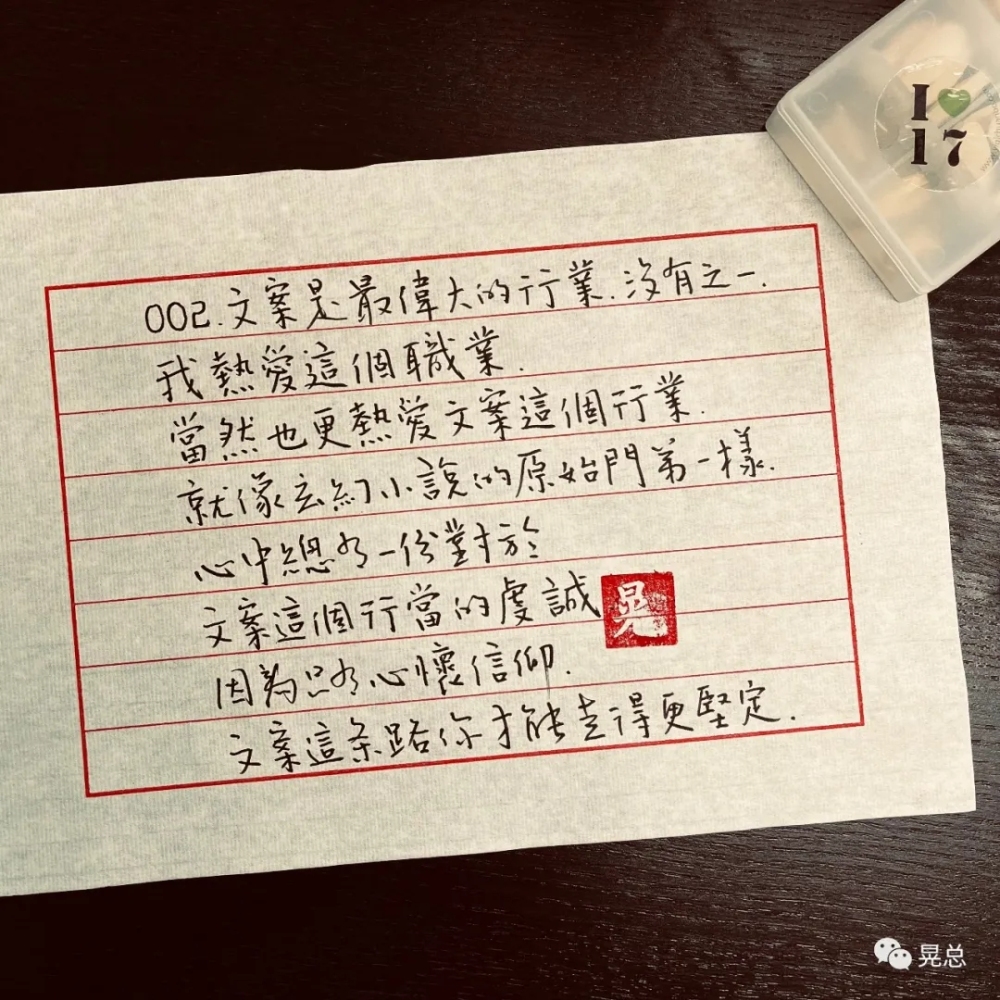 002.文案是最偉大的行業.沒有之一.
我熱愛這個職業.
當然也更熱愛文案這個行業.
就像玄幻小說的原始門第一樣.
心中總有一份對於
文案這個行當的虔誠
晃
因為只有心懷信仰.
文案這条路你才能走得更堅定.
I 💚
17
晃总